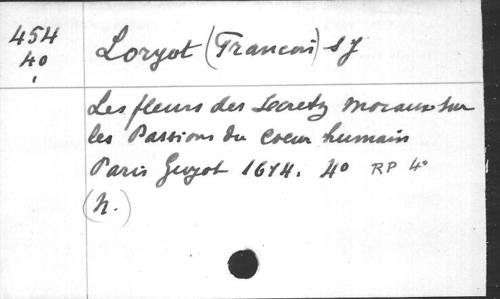 454
4o
Loryot (Francois) S J
Les fleurs des Secretz moraux sur
les Passions du coeur humain
Paris Guyot 1614. 4o RP 4°
(N.)